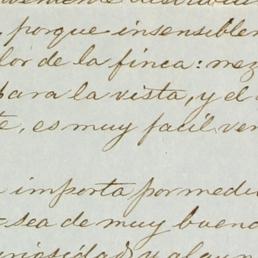 , porque insensiblem
lor de la finca: mez
para la vista, y el
te, es muy facil ven
importa por medi
sea de muy buena
curiosidad y algun